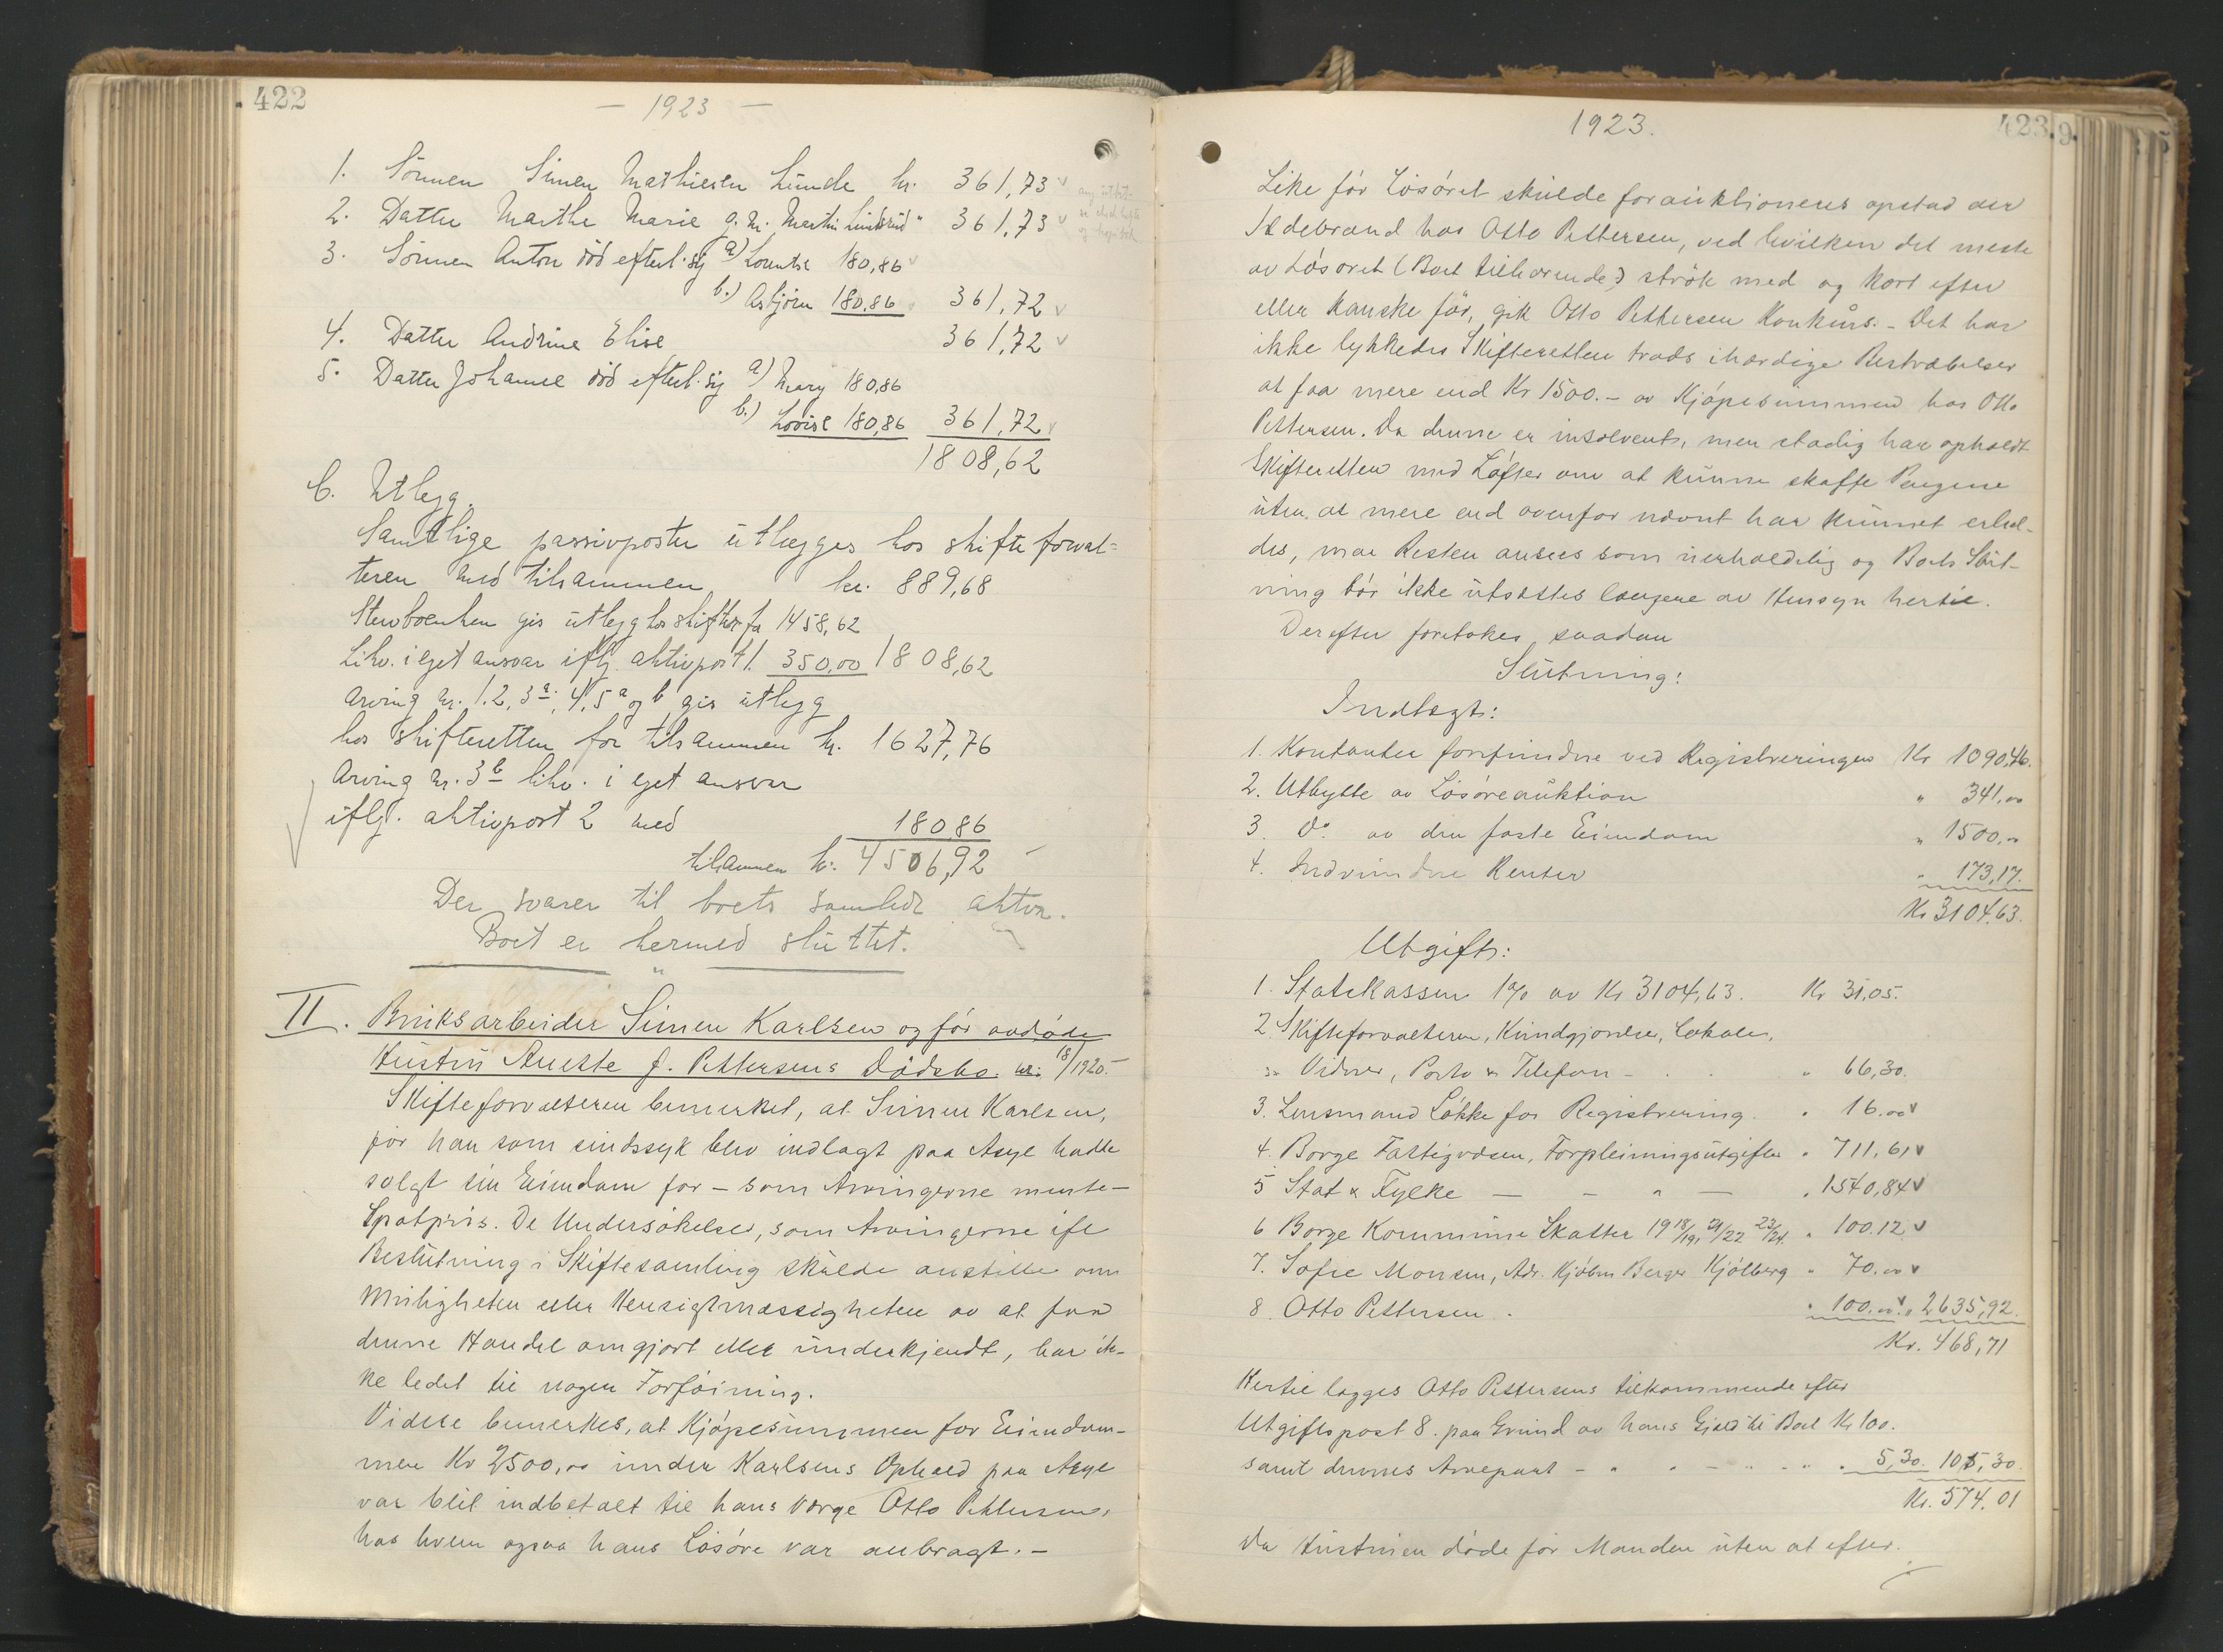 422
— 1923 —
1. Sönnen Simen Mathiesen Lunde kr. 361,73
2. Datter Marthe Marie g.m. Martin " 361,73
3. Sönnen Anton död efterl. sig a) Lorentse 180,86
b.) Asbjörn 180,86 361,72
4. Datter Andrine Elise 361,72
5. Datter Johanne död efterl. sig a) Mary 180,86
b.) Lovise 180,86 361,72
1808,62
C. Utlegg.
Samtlige passivposter utlegges hos skifteforval=
teren med tilsammen kr. 889,68
Stervboenken gis utlegg hos skifterf. fa 1458,62
Likv. i eget ansvar iflg. aktivpost 1. 350,00 1808,62
Arving nr. 1. 2, 3a, 4, 5a og b gis utlegg
hos skifteretten for tilsammen kr. 1627,76
Arving nr. 3b likv. i eget ansvar
iflg. aktivpost 2 med 180,86
tilsammen kr. 4506,92
Der svarer til boets samlede aktiva.
Boet er hermed sluttet.
II. Bruksarbeider Simen Karlsen og før avdøde
Hustru Anette f. Pettersens Dödsbo. nr. 18/1920.
Skifteforvalteren bemerket, at Simen Karlsen,
før han som sindssyk blev indlagt paa Asyl hadde
solgt sin Eiendom for – som Arvingerne mente –
Spotpris. De Undersökelser, som Arvingerne ifl
Beslutning i Skiftesamling skulde anstille om
Muligheten eller Hensigtmæssigheten av at faa
denne Handel omgjort eller underkjendt, har ik-
ke ledet til nogen Forföining.
Videre bemerkes, at Kjöpesummen for Eiendom-
men Kr 2500,00 under Karlsens Ophold paa Asyl
var blit indbetalt til hans Værge Otto Pettersen,
hos hvem ogsaa hans Lösöre var anbragt. –
1923.
423
9.
Like för Lösöret skulde forauktioneres opstod der
Ildebrand hos Otto Pettersen, ved hvilken det meste
av Lösöret (Boet tilhörende) strök med og kort efter
eller kanske för, gik Otto Pettersen Konkurs. – Det har
ikke lykkedes Skifteretten trods ihærdige Bestræbelser
at faa mere end Kr 1500.– av Kjöpesummen hos Otto
Pettersen. Da denne er insolvent, men stadig har opholdt
Skifteretten med Löfter om at kunne skaffe Pengene
uten at mere end ovenfor nævnt har kunnet erhol-
des, maa Resten ansees som uerholdelig og Boets Slut-
ning bör ikke utsættes længere av Hensyn hertil.
Derefter foretokes saadan
Slutning:
Indtægt:
1. Kontanter forefundne ved Registreringen Kr 1090,46.
2. Utbytte av Lösöreauktion " 341,00
3. Do. av den faste Eiendom " 1500,00
4. Indvundne Renter " 173,17.
Kr 3104,63.
Utgift:
1. Statskassen 1% av Kr 3104,63. Kr 31,05.
2 Skifteforvalteren, Kundgjörelse, Lokale,
Vidner, Porto & Telefon – " 66,30.
3. Lensmand Lökke for Registrering. " 16.00
4. Borge Fattigvæsen, Forpleiningsutgifter " 711,61
5 Stat & Fylke — – " — " 1540,84
6 Borge Kommune Skatter 1918/19, 21/22 23/24. " 100.12
7. Sofie Monsen, Adr. Kjöbm Berger Kjölberg " 70.00
8. Otto Pettersen. " 100.00 " 2635,92.
Kr. 468,71
Hertil lægges Otto Pettersens tilkommende efter
Utgiftspost 8. paa Grund av hans Gjæld til Boet Kr 100.
samt dennes Arvepart – " " – " " " 5,30. 105,30.
Kr. 574.01
Da Hustruen döde för Manden uten at efter-